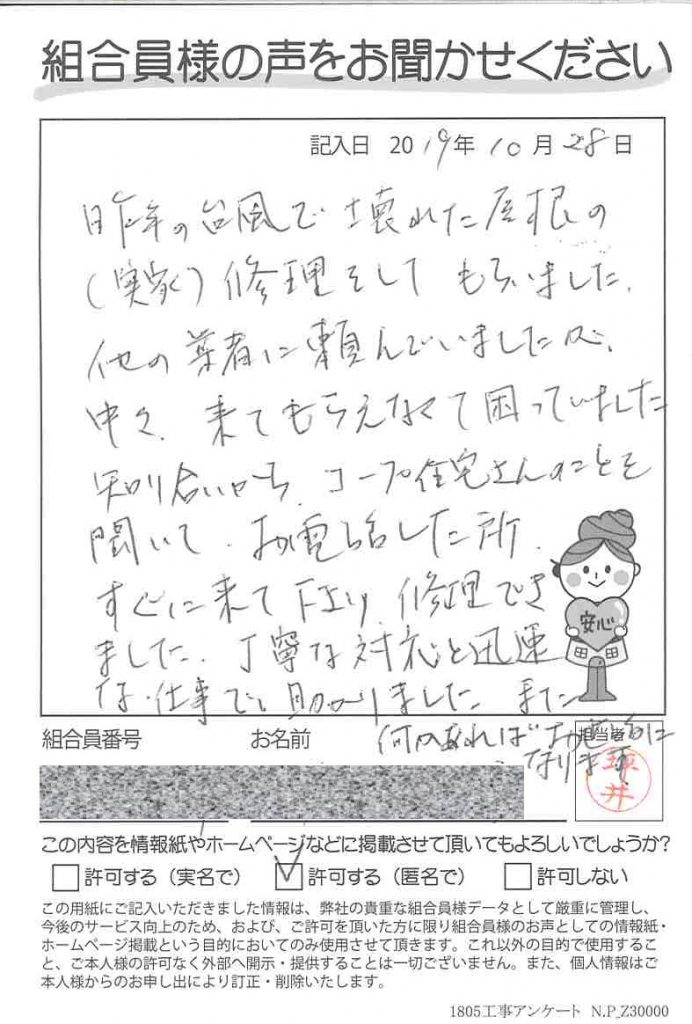 組合員様の声をお聞かせください
記入日 2019年10月28日
昨年の台風で壊れた屋根の
(実家)修理をして もらいました。
他の業者に頼んでいましたが、
中々、来てもらえなくて困っていました
知り合いから、コープ住宅さんのことを
聞いて、お電話した所、
すぐに来て下さり、修理でき
ました。丁寧な対応と迅速
な仕事で、助かりました また
何かあれば お世話に
なります
安心
組合員番号
お名前
担当者
この内容を情報紙やホームページなどに掲載させて頂いてもよろしいでしょうか?
許可する(実名で) 許可する(匿名で) 許可しない
この用紙にご記入いただきました情報は、弊社の貴重な組合員様データとして厳重に管理し、
今後のサービス向上のため、および、ご許可を頂いた方に限り組合員様のお声としての情報紙・
ホームページ掲載という目的においてのみ使用させて頂きます。これ以外の目的で使用するこ
と、ご本人様の許可なく外部へ開示・提供することは一切ございません。また、個人情報はご
本人様からのお申し出により訂正・削除いたします。
1805工事アンケート N.P_Z30000